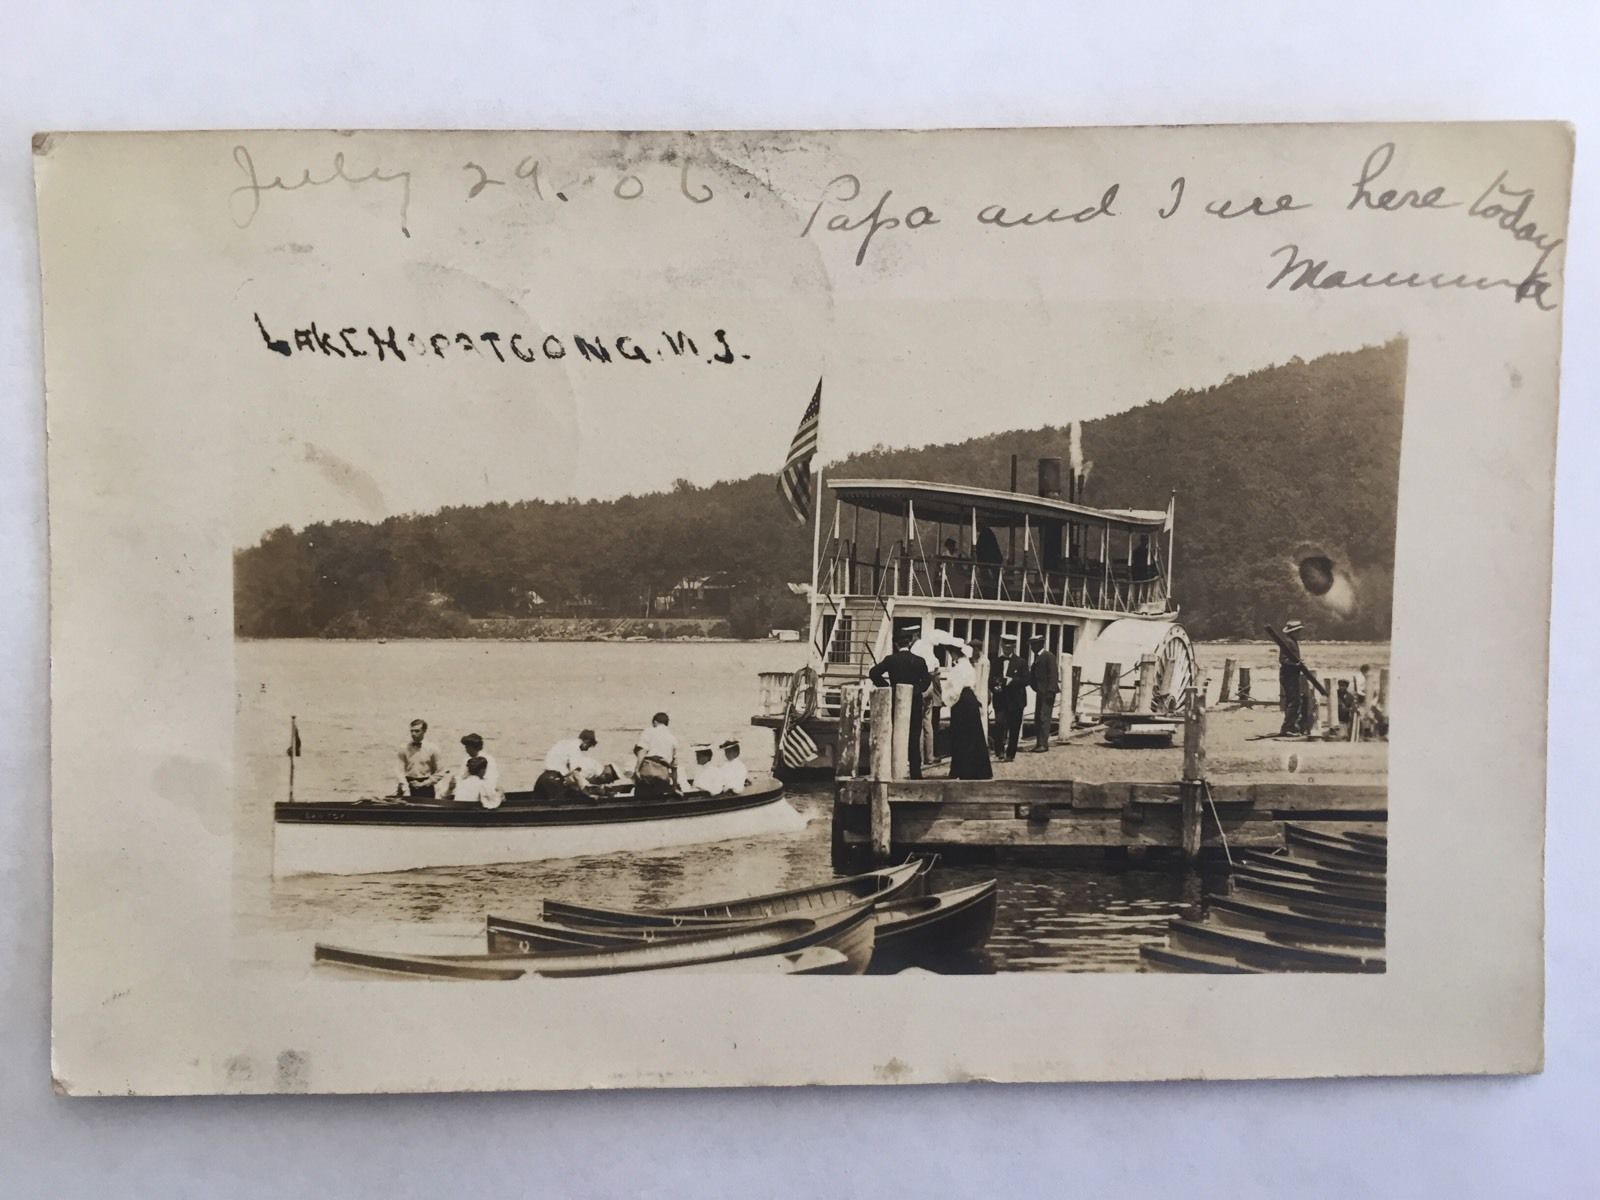 July 29. 06. Papa and I are here today
Mamma
LAKE HOPATCONG. N.J.